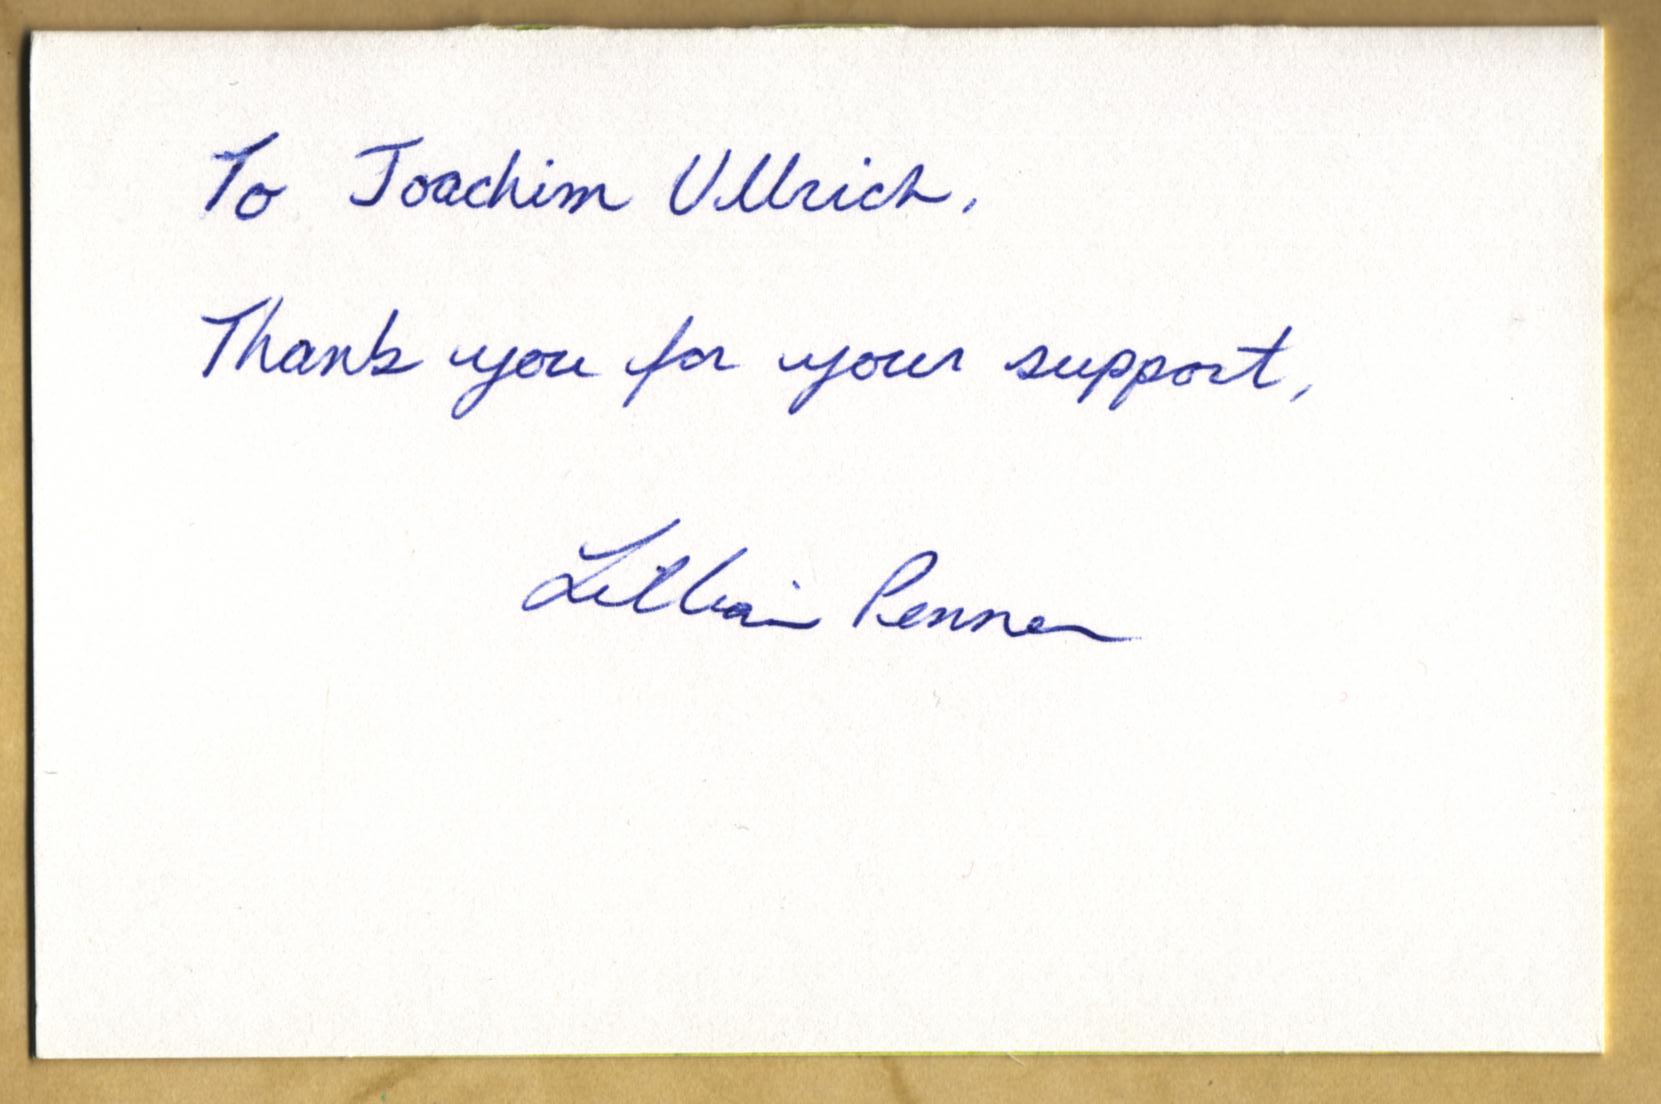 To Joachim Ullrich,
Thank you for your support,
Lillian Penner